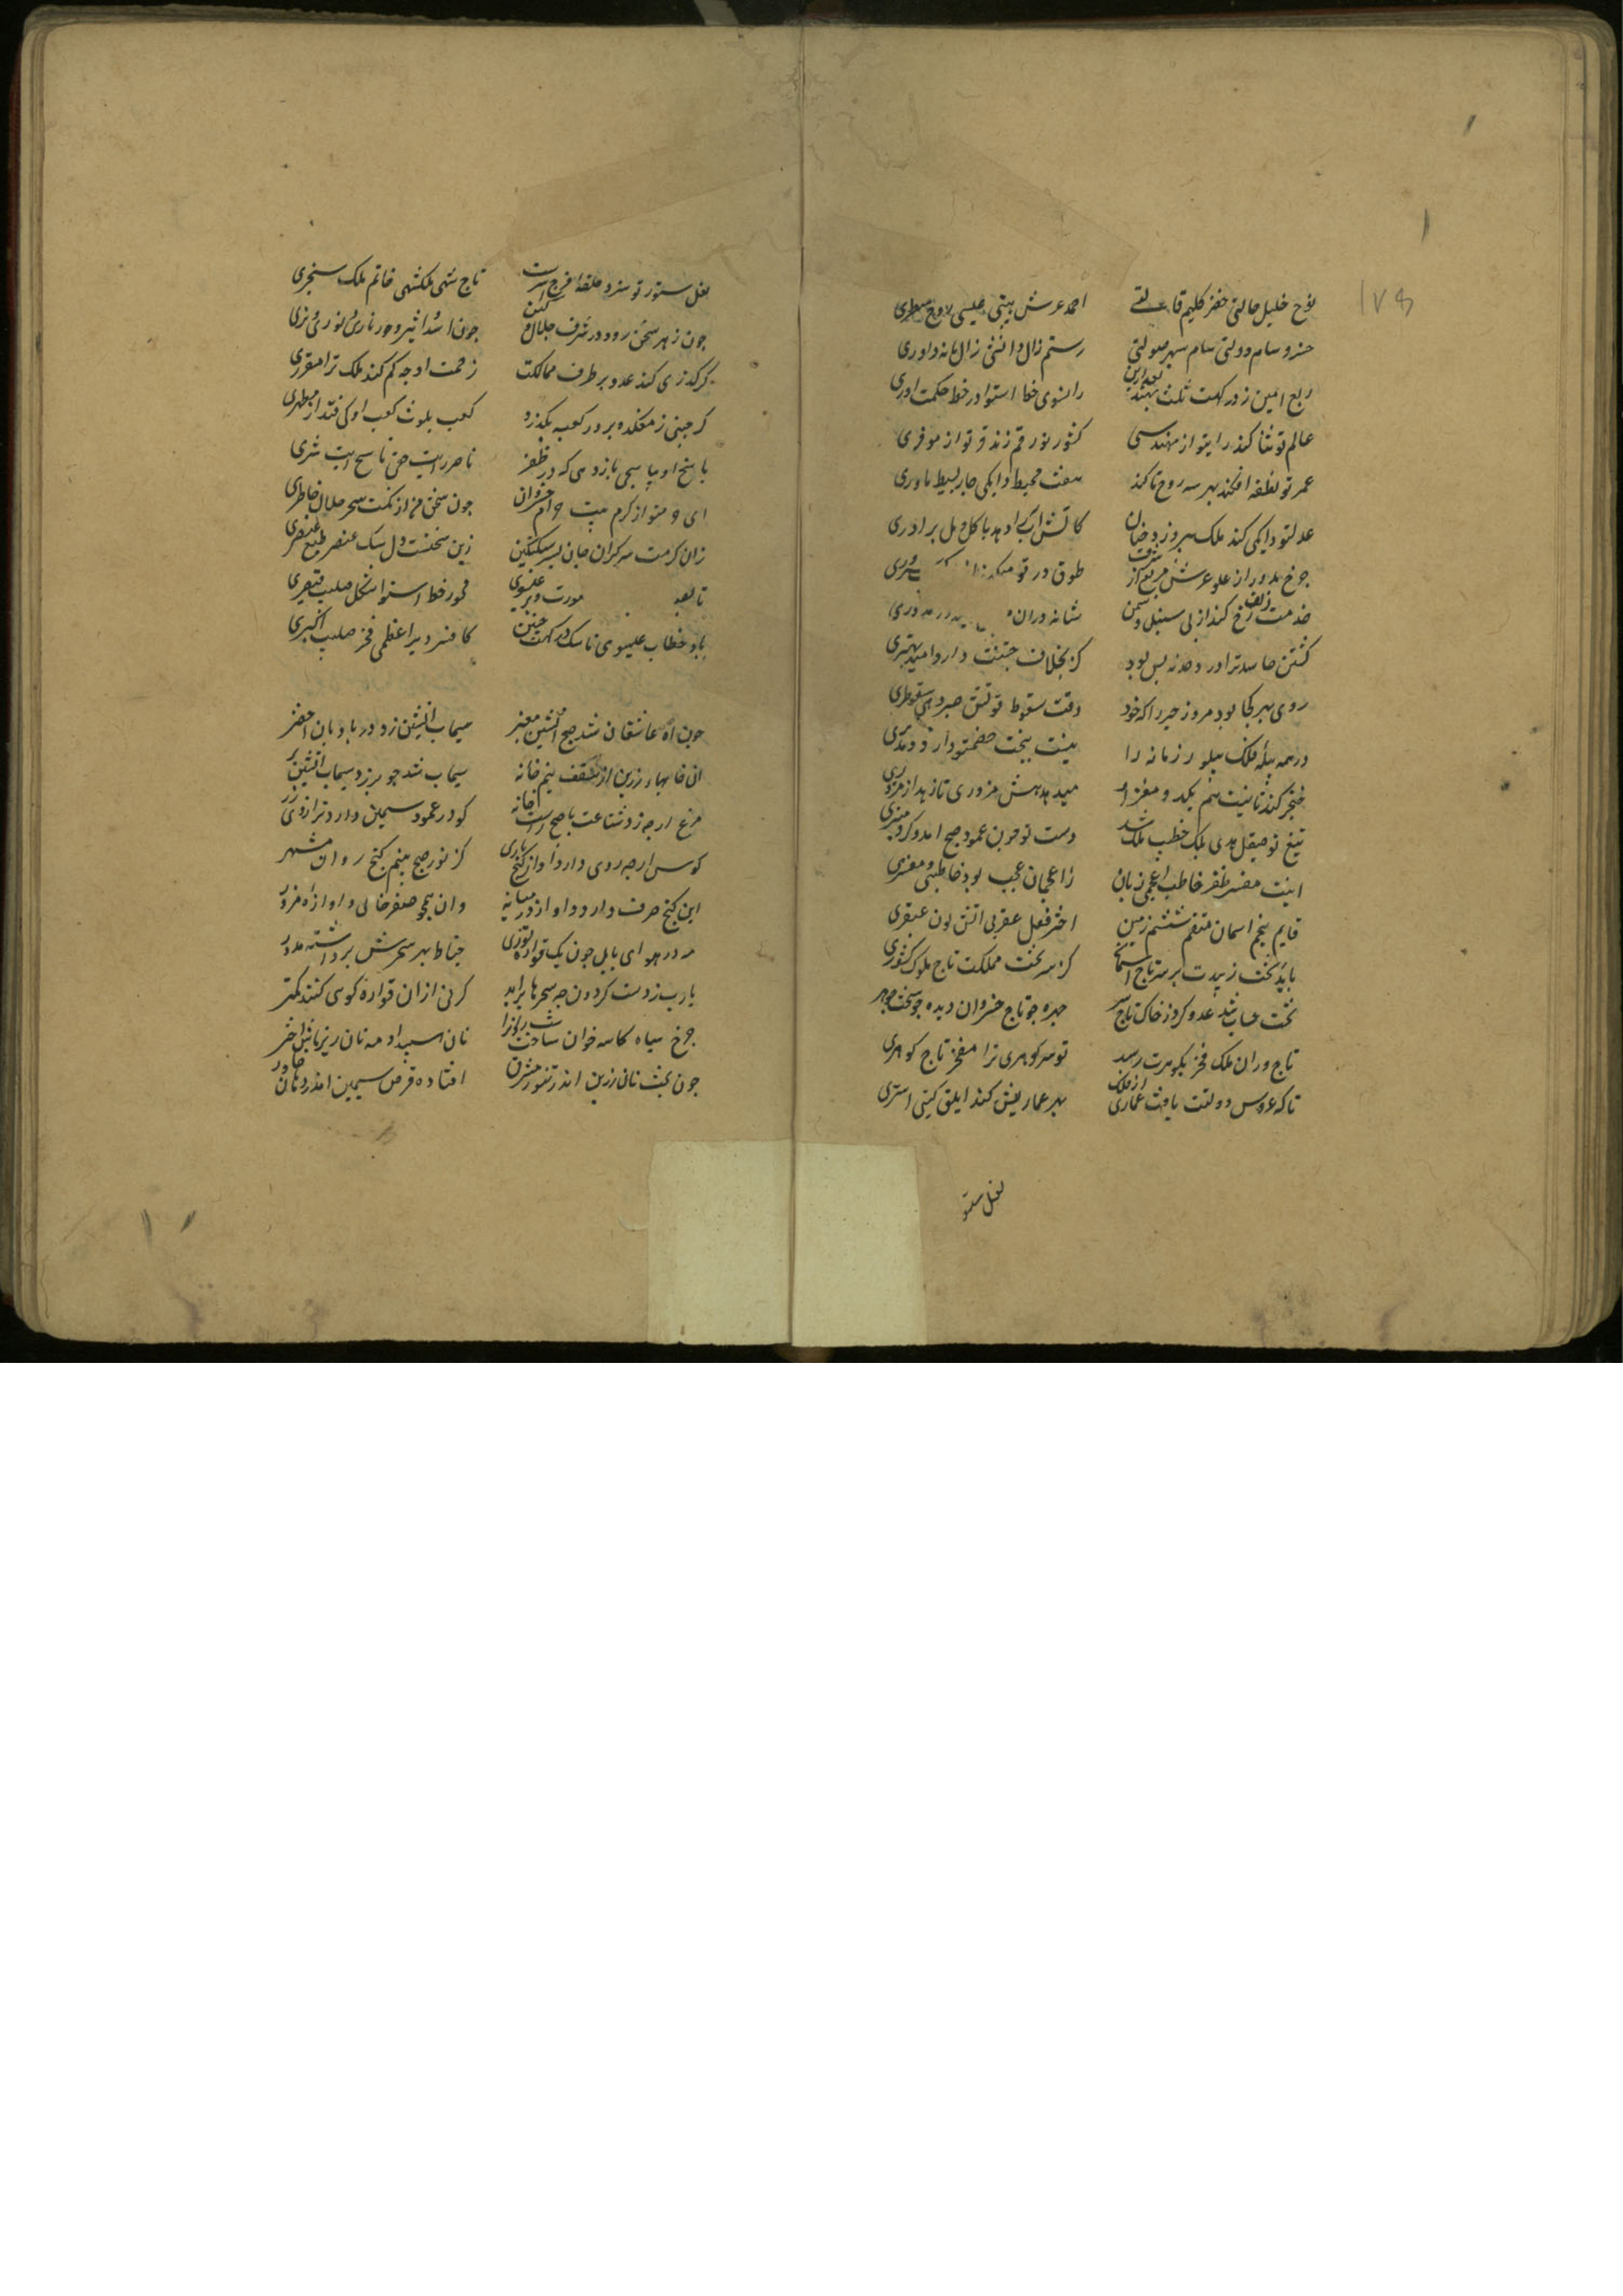 نوح خلیل حالتی خضر کلیم قالتی
احمد عرش بیتی عیسی روح منظری
خسرو سام دولتی سام سپهر صولتی
رستم زال دانشی زال زمانه داوری
ربع زمین ز درگهت ثلث نهند بعد ازین
را بسوی خط استوا در خط حکمت آوری
عالم نو بنا کند رای تو از مهندسی
کشور نو رقم زند فر تو از موفری
عمر تو نطفه افکند بهر سه روح تا کند
هفت محیط دایگی چار بسیط مادری
عدل تو دایگی کند ملک سه روزه
کاتش آب را دهد با گل و مل برادری
چرخ مدور از علو عرش مربع از شرف
طوق در تو
خدمت زلف و رخ کند از پی سنبل و سمن
شانه دران
کشتن حاسد ترا درد حسد نه بس بود
کز خلاف جستنت دارد امید بهتری
روی بهی کجا بود مرد ز حیر را که خود
وقت سقوط قوتش صبر دهی سقوطری
در همه پله فلک پیله ور زمانه را
نیست به بخت خصم تو داروی درد مدبری
خنجر کندناییت هم بگدد و مغز او
میدهدش مزوری تا زهد از مزوری
تیغ تو صیقل هدی بلکه خطیب ملک شد
دست تو چون عمود صبح آمد و کرد منبری
اینت مفسر ظفر خاطب اعجمی زبان
زاعجمیان عجب بود خاطبی و مفسری
قایم پنجم آسمان منتقم ششم زمین
اختر فعل عقربی آتش لون عبقری
باید تخت زیر دست بر سر تاج آسمان
کز سر تخت مملکت تاج ملوک کشوری
تخت حساب شد عدو کرد ز خاک تاج سر
چهره چو تاج خسروان دیده چو تخت جوهری
تاج وران ملک فخر بگوهرت رسد
تو سر گوهری ترا مفخر تاج گوهری
تا که عروس دولتت یافت عماری از فلک
بهر عماریش کند ابلق گیتی استری
نعل ستو
نعل ستور تو سزد حلقه فرج استرت
تاج شهی ملکشهی خاتم ملک سنجری
چون ز هر سخن رود در شرف جلال و کین
چون اسد و اثیر و خور ناری و نوری و نری
گر گذری کند عدو بر طرف ممالکت
زحمت او چه کم کند ملک ترا مقرری
گر جنبی ز معکده بر در کعبه بگذرد
کعب بلوث کعب او کی فتد از مطهری
پاسخ او بیاسجی باز دهی که در ظفر
ناصر رایت حق ناسخ آیت شری
ای چو متو از کرم بیت چو ام خسروان
چون سخن من از نکت سحر حلال خاطری
زان کرمت سر گران جان پسر سبکتکین
زین سخنست دل سبک عنصر طبع عنصری
تا بود صورت و پر عیسوی
محور خط استوا شکل صلیب قیصری
باد خطاب عیسوی با سگ درگهت چنین
کافسر دیر اعظمی فخر صلیب اکبری
چون آه عاشقان شد صبح آتشین معنبر
سیماب آتشین زد در بادبان اخضر
آن خایهای زرین از سقف نیم خانه
سیماب شد چو بر زد سیماب آتشین سر
مرغ ارچه زد شناعت با صبح راست خانه
کو در عمود سیمین دارد ترازوی زر
کوس ارچه روی دارد آواز گنج باری
کز نور صبح بینم گنج روان مشهر
این گنج صرف دارد و آواز در میانه
وان همچو صفر خالی و آوازه مزور
مه در هوای بابل چون یک قواره توزی
خیاط بهر سحرش برداشته مدور
یارب ز دست گردون چه سحرها برآید
گر نی ازان قواره کوسی کنند کمتر
چرخ سیاه کاسه خوان ساخت شبروان را
نان سپید او مه نان ریزهاش اختر
چون پخت نان زرین اندر تنور مشرق
افتاده قرص سیمین اندر دهان خاور